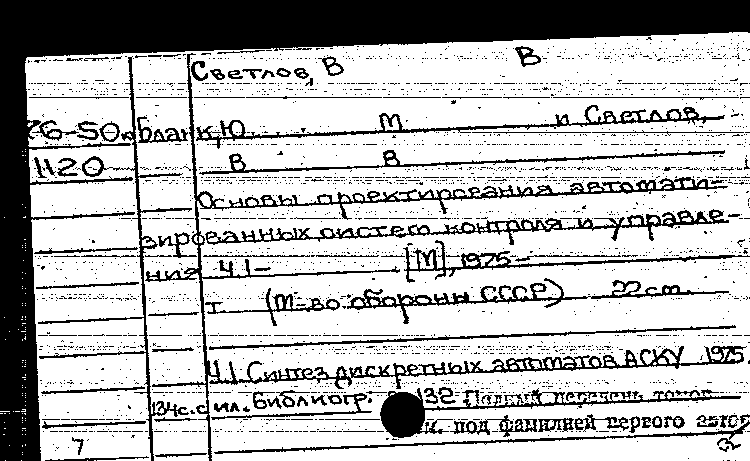 Светлов, В В
76-50к бланк, Ю М и Светлов,
1120 В В
Основы проектирования автомати-
зированных систем контроля и управле-
ния Ч 1- [М], 1975-
т (М-во обороны СССР) 22 cm.
Ч.1. Синтез дискретных автоматов АСКУ 1975.
134с. с ил. Библиогр: 132 Полный перечень томов
м. под фамилией первого автор
7